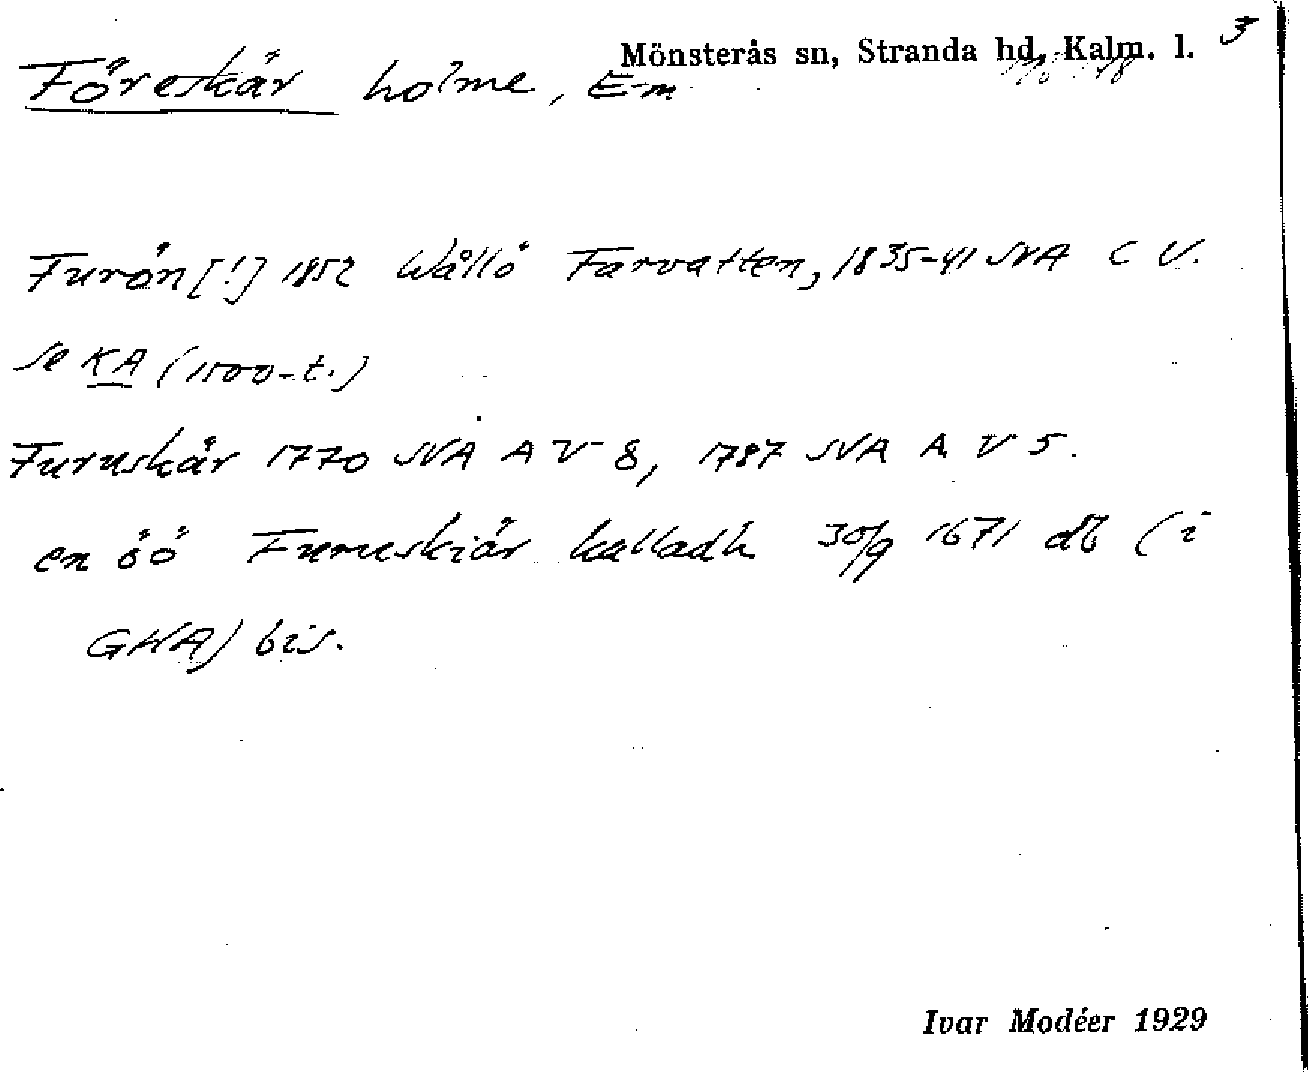 Mönsterås sn, Stranda hd, Kalm. l. 3
Föreskär holme, E-m
Furön [!] 1852 Wållö Farvatten, 1835-41 SVA C V.
Se KA (1500-t.)
Furuskär 1770 SVA A V 8, 1787 SVA A V 5.
en öö Furuskiär kalladh 30/9 1671 db (i
GHA) bis.
Ivar Modéer 1929